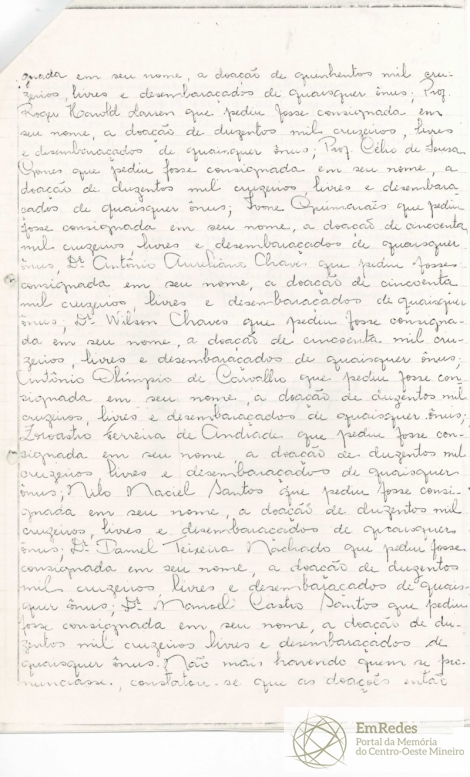 gnada em seu nome, a doação de quinhentos mil cru-
zeiros, livres e desembaraçados de quaisquer ônus; Prof.
Roger Harold Larsen que pediu fosse consignada em
seu nome, a doação de duzentos mil cruzeiros, livres
e desembaraçados de quaisquer ônus; Prof. Célio de Sousa
Gomes que pediu fosse consignada em seu nome, a
doação de duzentos mil cruzeiros, livres e desembara
çados de quaisquer ônus; Ivone Guimarães que pediu
fosse consignada em seu nome, a doação de cincoenta
mil cruzeiros livres e desembaraçados de quaisquer
ônus, Dr. Antônio Aureliano Chaves que pediu fosse
consignada em seu nome, a doação de cincoenta
mil cruzeiros, livres e desembaraçados de quaisquer
ônus; Dr. Wilson Chaves que pediu fosse consigna-
da em seu nome, a doação de cincoenta mil cru-
zeiros, livres e desembaraçados de quaisquer ônus;
Antônio Olímpio de Carvalho que pediu fosse con-
signada em seu nome, a doação de duzentos mil
cruzeiros, livres e desembaraçados de quaisquer ônus;
Zoroastro Ferreira de Andrade que pediu fosse con-
signada em seu nome, a doação de duzentos mil
cruzeiros livres e desembaraçados de quaisquer
ônus; Nilo Maciel Santos que pediu fosse consi-
gnada em seu nome, a doação de duzentos mil
cruzeiros, livres e desembaraçados de quaisquer
ônus; Dr. Daniel Teixeira Machado que pediu fosse
consignada em seu nome, a doação de duzentos
mil cruzeiros, livres e desembaraçados de quais-
quer ônus; Dr. Castro Santos que pediu
fosse consignada em seu nome, a doação de du-
zentos mil cruzeiros livres e desembaraçados de
quaisquer ônus. Não mais havendo quem se pro-
nunciasse, constatou-se que as doações então
EmRedes
Portal da Memória
do Centro-Oeste Mineiro